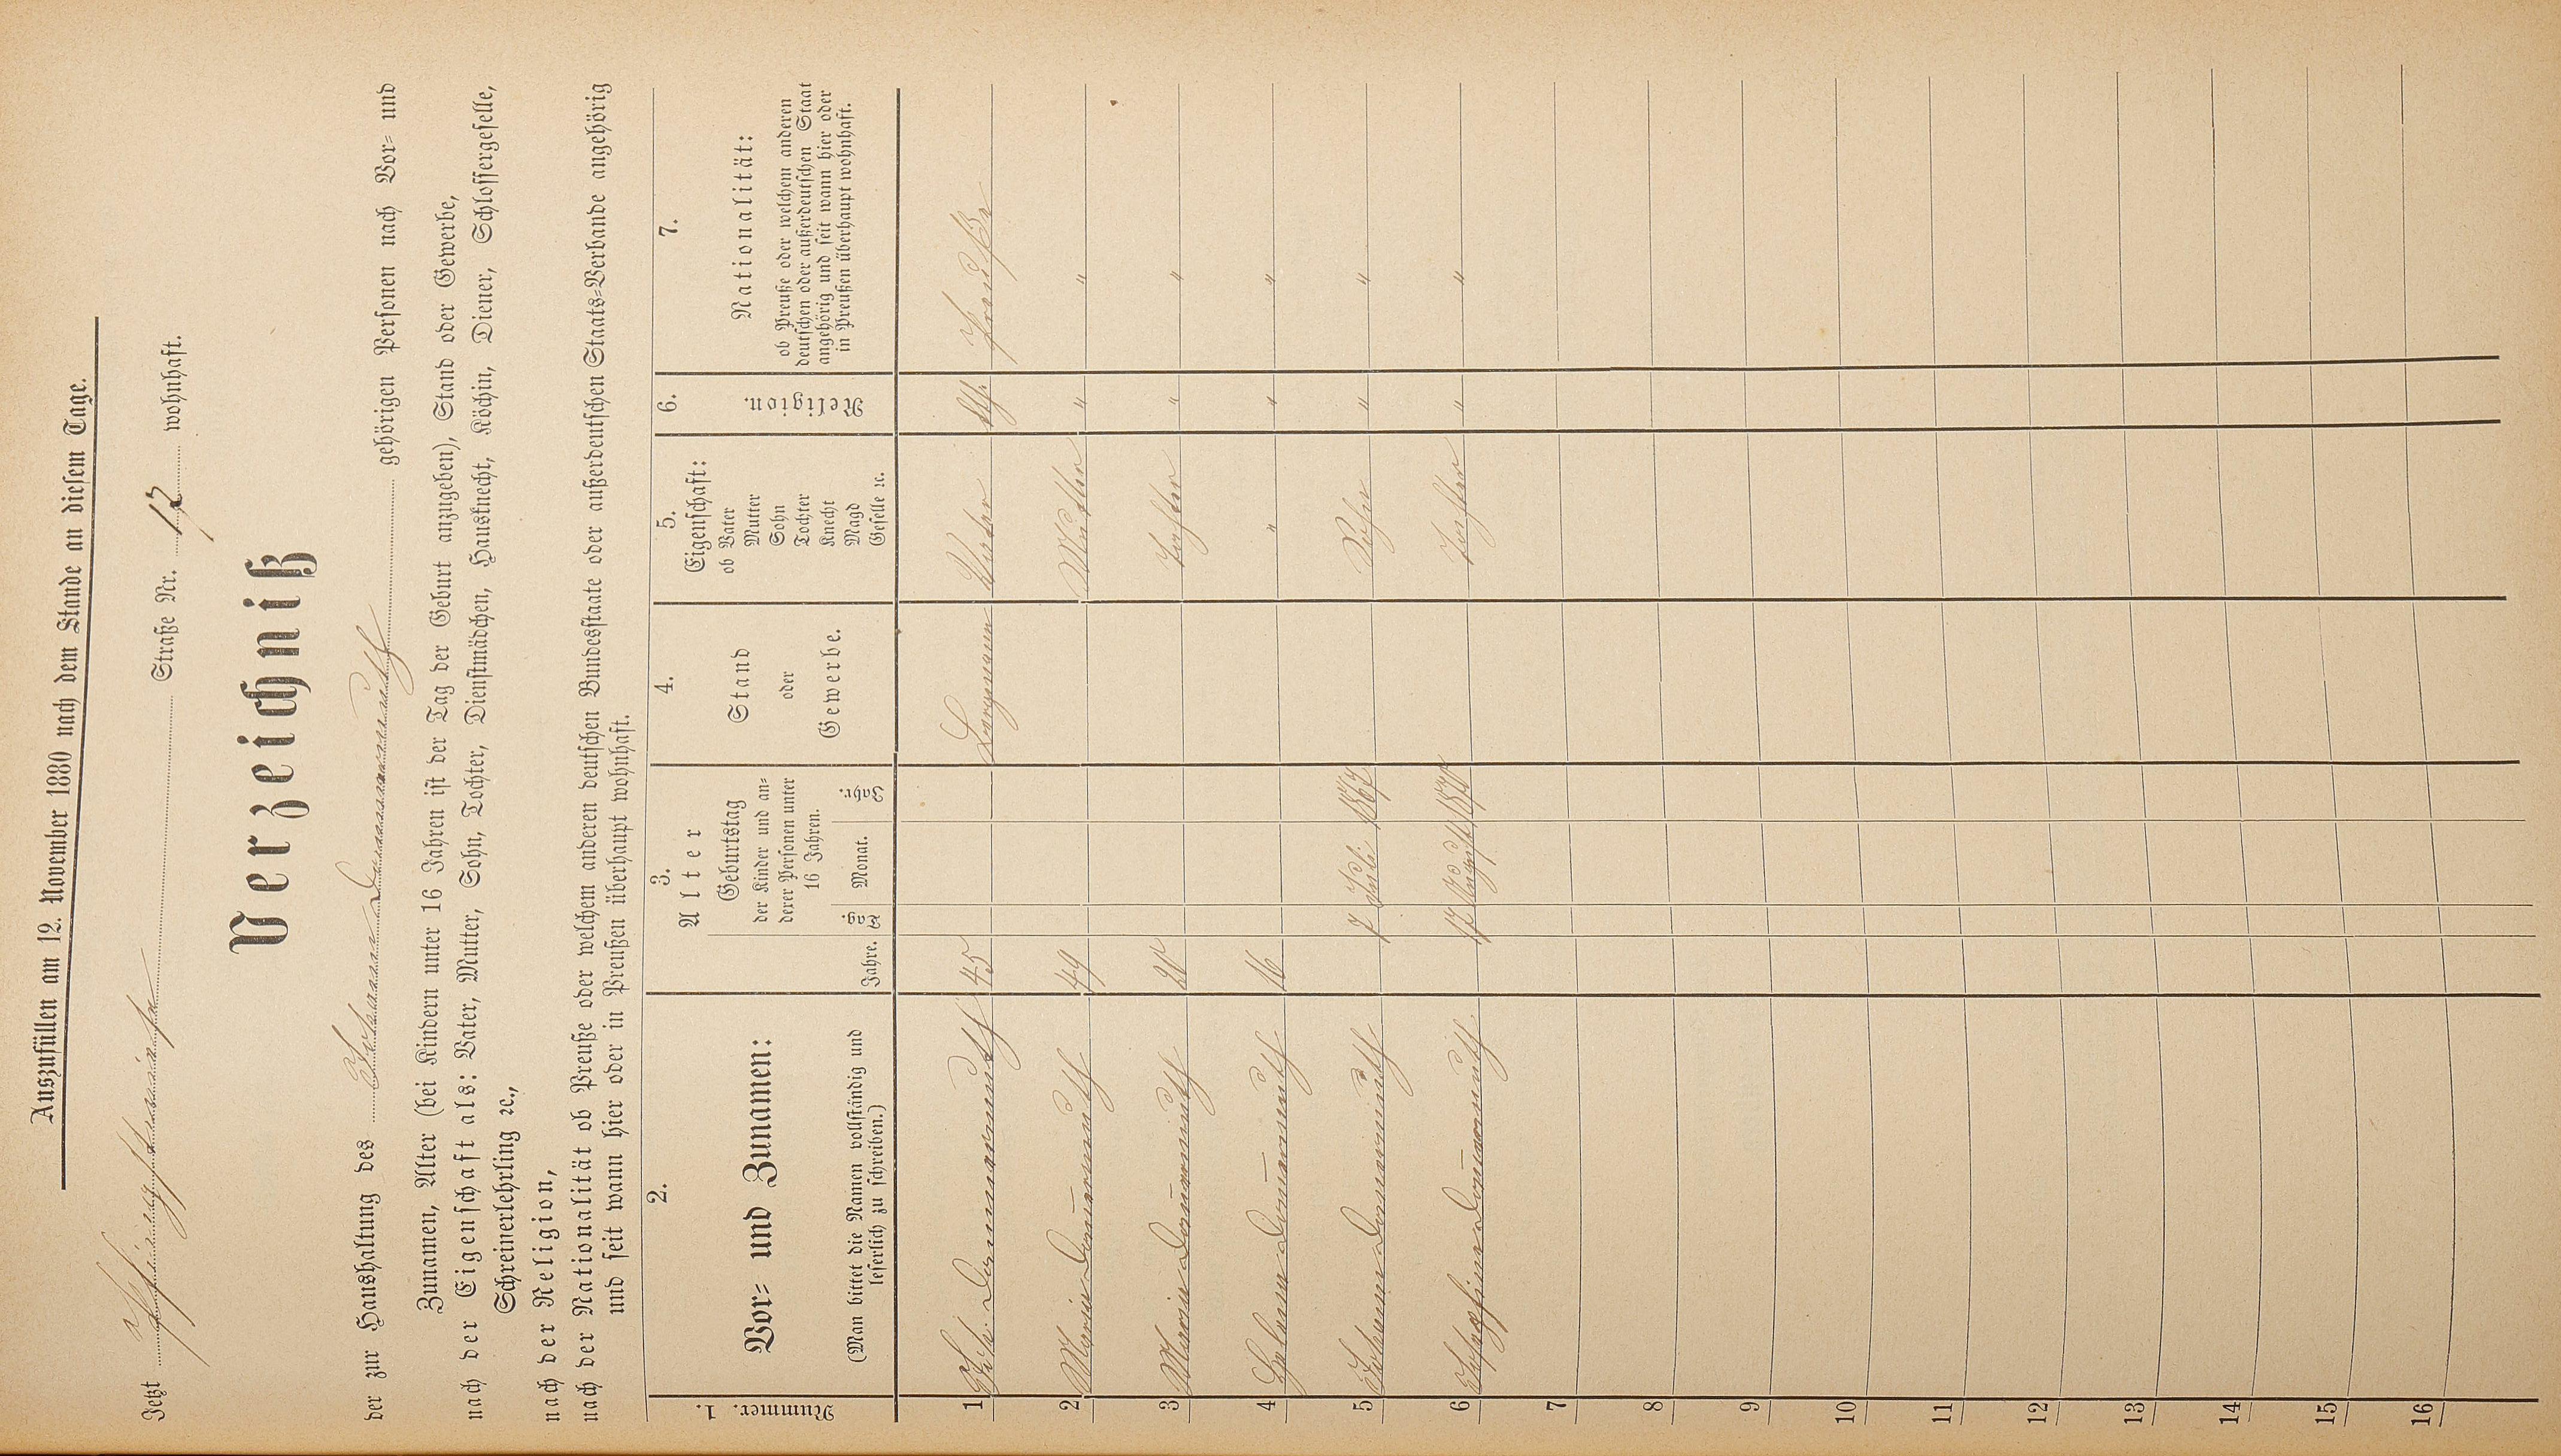 Auszufüllen am 12. November 1880 nach dem Stande an diesem Tage.
Jetzt Straße Nr. 12 wohnhaft.
Verzeichniß
der zur Haushaltung des Johann gehörigen Personen nach Vor- und
Zunamen, Alter (bei Kindern unter 16 Jahren ist der Tag der Geburt anzugeben), Stand oder Gewerbe,
nach der Eigenschaft als: Vater, Mutter, Sohn, Tochter, Dienstmädchen, Hausknecht, Köchin, Diener, Schlossergeselle,
Schreinerlehrling ꝛc.,
nach der Religion,
nach der Nationalität ob Preuße oder welchem anderen deutschen Bundesstaate oder außerdeutschen Staats-Verbande angehörig
und seit wann hier oder in Preußen überhaupt wohnhaft.
1.
Nummer.
2.
Vor- und Zunamen:
(Man bittet die Namen vollständig und
leserlich zu schreiben.)
3.
Alter
Jahre.
Geburtstag
der Kinder und an-
derer Personen unter
16 Jahren.
Tag. Monat. Jahr.
4.
Stand
oder
Gewerbe.
5.
Eigenschaft:
ob Vater
Mutter
Sohn
Tochter
Knecht
Magd
Geselle ꝛc.
6.
Religion.
7.
Nationalität:
ob Preuße oder welchem anderen
deutschen oder außerdeutschen Staat
angehörig und seit wann hier oder
in Preußen überhaupt wohnhaft.
1 Joh. 45 Bergmann Vater kth. Preuße
2 Maria 49 Mutter " "
3 Maria Tochter " "
4 Helena 16 " " "
5 Johann 7 Juli 1867 Sohn " "
6 Josephina 17 August Tochter " "
7
8
9
10
11
12
13
14
15
16